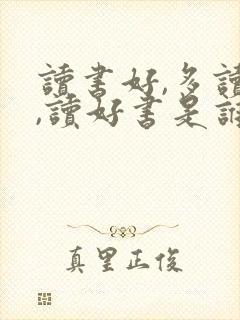 讀書好,多讀
,讀好書是誰
真里正俊